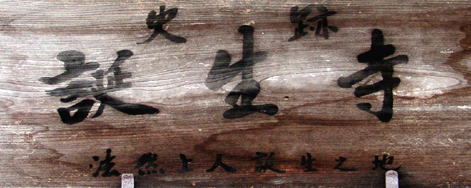 史跡
誕生寺
法然上人誕生之地